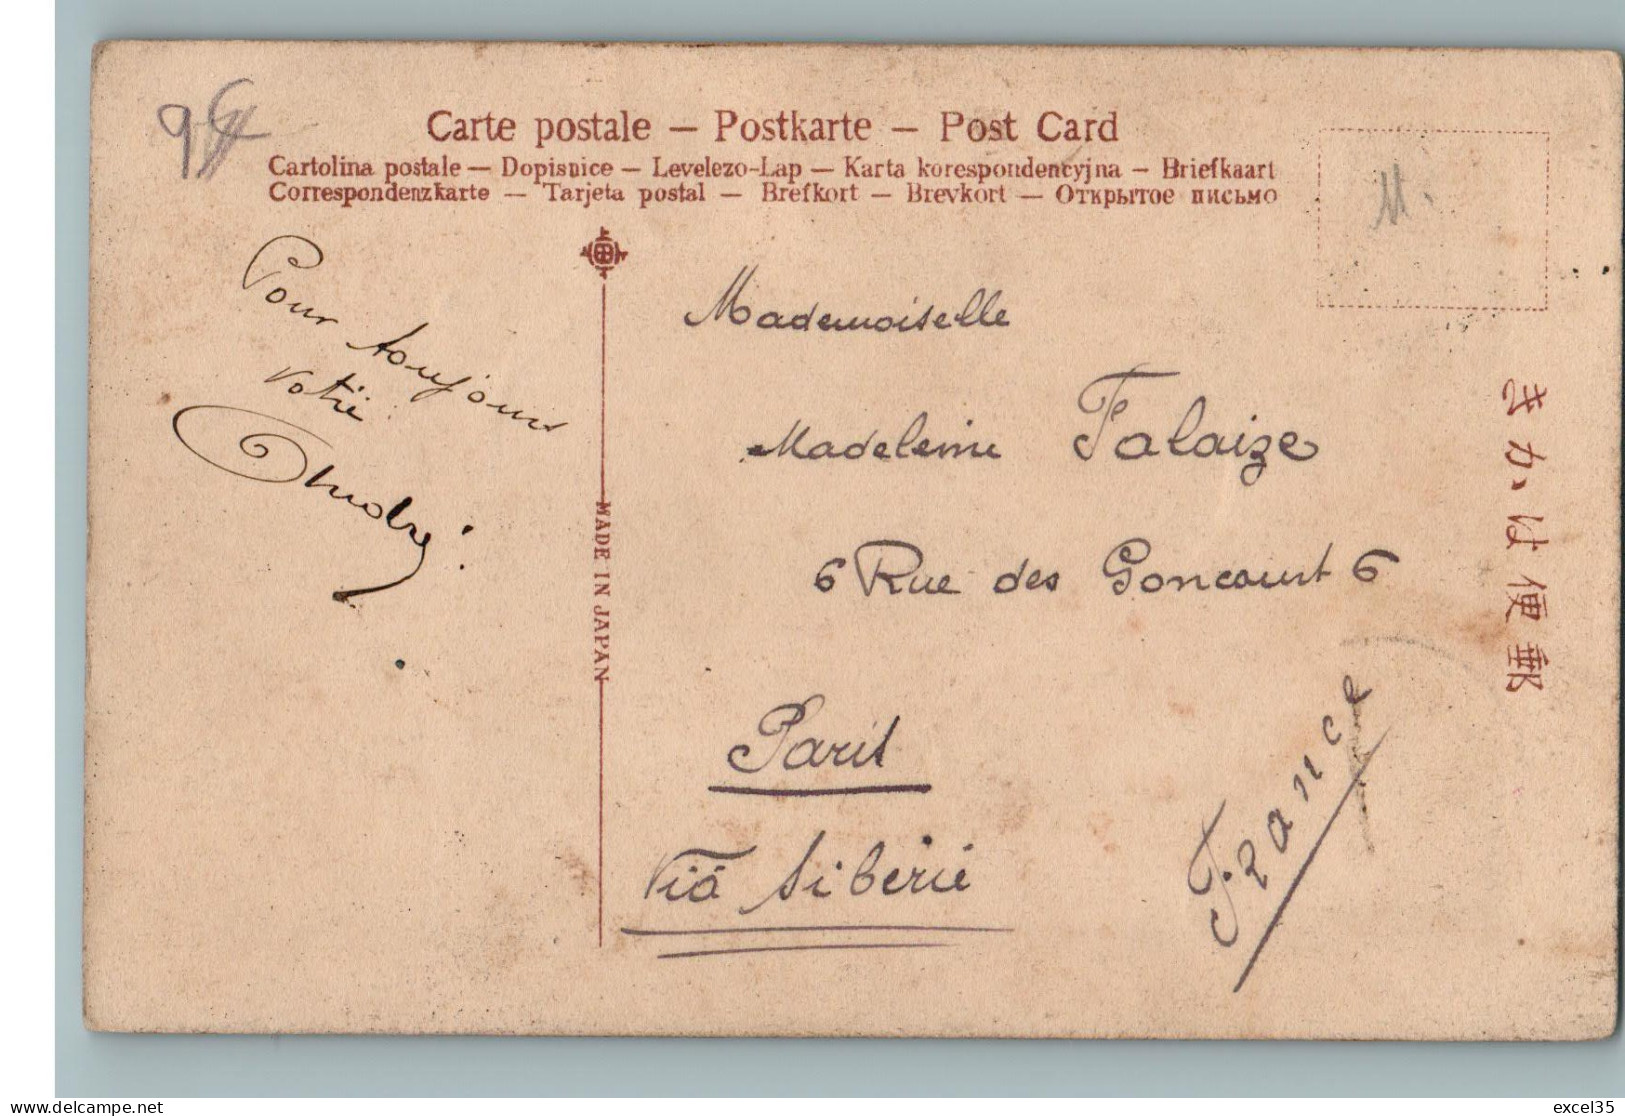 Carte postale — Postkarte — Post Card
Cartolina postale — Dopisnice — Levelezo-Lap — Karta korespondencyjna — Briefkaart
Correspondenzkarte — Tarjeta postal — Brefkort — Brevkort — Открытое письмо
M.
Pour toujours
votre
André.
MADE IN JAPAN
Mademoiselle
Madeleine Falaize
6 Rue des Goncourt 6
Paris
Via Siberie
France
きかは便郵
www.delcampe.net
excel35